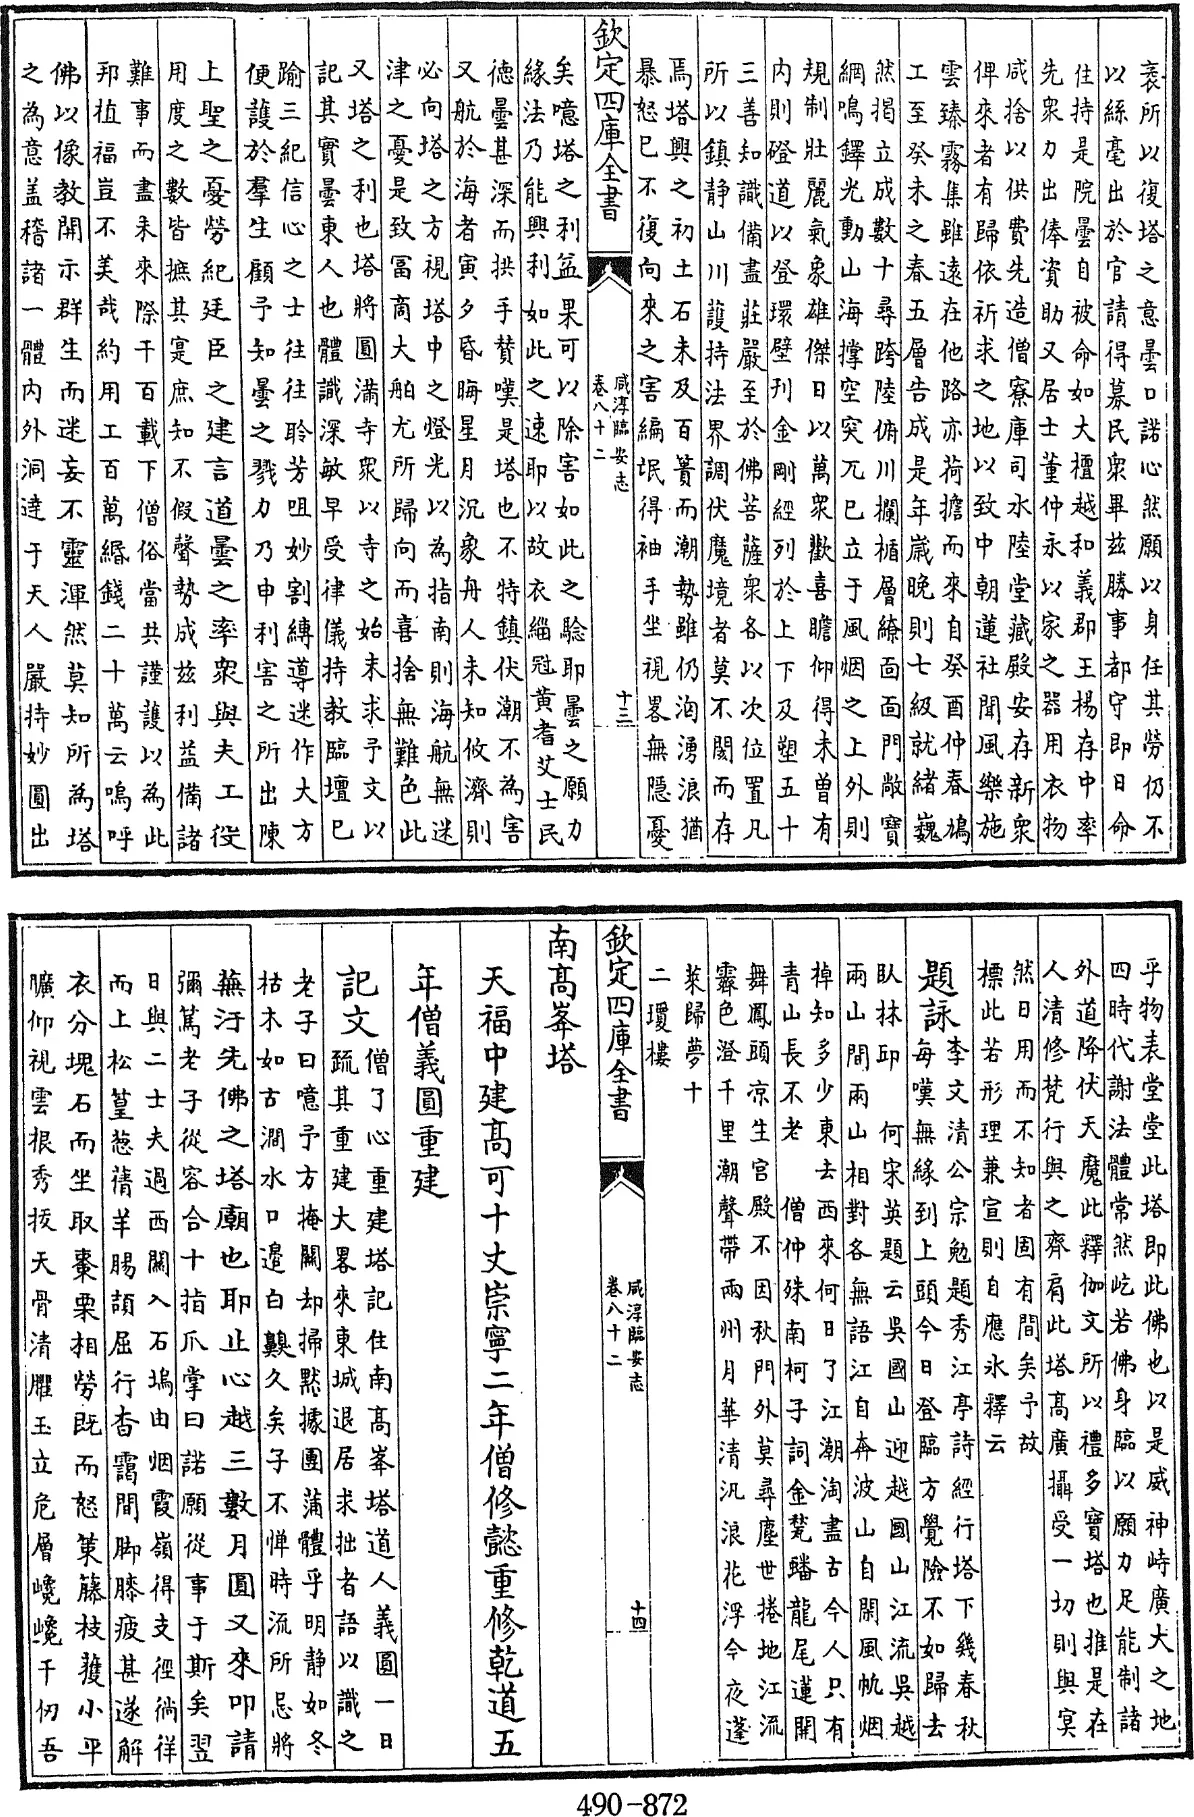 衰所以復塔之意曇口諾心然願以身任其勞仍不
以絲毫出於官請得募民衆畢兹勝事都守即日命
住持是院曇自被命如大檀越和義郡王楊存中率
先衆力出俸資助又居士董仲永以家之器用衣物
咸捨以供費先造僧寮庫司水陸堂藏殿安存新衆
俾來者有歸依祈求之地以致中朝蓮社聞風樂施
雲臻霧集雖遠在他路亦荷擔而來自癸酉仲春鳩
工至癸未之春五層告成是年嵗晚則七級就緒巍
然揭立成數十尋跨陸俯川欄楯層繚面面門敞寶
網鳴鐸光動山海撑空突兀已立于風烟之上外則
規制壯麗氣象雄傑日以萬衆歡喜瞻仰得未曽有
内則磴道以登環壁刊金剛經列於上下及塑五十
三善知識備盡莊嚴至於佛菩薩衆各以次位置凡
所以鎮静山川護持法界調伏魔境者莫不閎而存
焉塔興之初土石未及百簣而潮勢雖仍洶湧浪猶
暴怒已不復向來之害編氓得袖手坐視畧無隠憂
欽定四庫全書
咸淳臨安志
卷八十二
十三
矣噫塔之利益果可以除害如此之騐耶曇之願力
緣法乃能興利如此之速耶以故衣緇冠黄耆艾士民
德曇甚深而拱手賛嘆是塔也不特鎮伏潮不為害
又航於海者寅夕昏晦星月沉象舟人未知攸濟則
必向塔之方視塔中之燈光以為指南則海航無迷
津之憂是致冨商大舶尤所歸向而喜捨無難色此
又塔之利也塔將圓滿寺衆以寺之始末求予文以
記其實曇東人也體識深敏早受律儀持教臨壇已
踰三紀信心之士往往聆芳咀妙割縛導迷作大方
便護於羣生顧予知曇之戮力乃申利害之所出陳
上聖之憂勞紀廷臣之建言道曇之率衆與夫工役
用度之數皆摭其寔庶知不假聲勢成兹利益備諸
難事而盡未來際千百載下僧俗當共謹護以為此
邦植福豈不美哉約用工百萬緡錢二十萬云嗚呼
佛以像教開示群生而迷妄不靈渾然莫知所為塔
之為意盖稽諸一體内外洞達于天人嚴持妙圓出
乎物表堂堂此塔即此佛也以是威神峙廣大之地
四時代謝法體常然屹若佛身臨以願力足能制諸
外道降伏天魔此釋伽文所以禮多寶塔也推是在
人清修梵行與之齊肩此塔髙廣攝受一切則與㝠
然日用而不知者固有間矣予故
標此若形理兼宣則自應永釋云
題詠李文清公宗勉題秀江亭詩經行塔下幾春秋
每嘆無緣到上頭今日登臨方覺險不如歸去
臥林邱　何宋英題云吳國山迎越國山江流吳越
兩山間兩山相對各無語江自奔波山自閑風㠶烟
棹知多少東去西來何日了江潮淘盡古今人只有
青山長不老　僧仲殊南柯子詞金甃蟠龍尾蓮開
舞鳳頭凉生宮殿不因秋門外莫尋塵世捲地江流
霽色澄千里潮聲帶兩州月華清汎浪花浮今夜蓬
萊歸夢十
二瓊樓
欽定四庫全書
咸淳臨安志
卷八十二
十四
南髙峯塔
天福中建髙可十丈崇寧二年僧修懿重修乾道五
年僧義圓重建
記文僧了心重建塔記住南髙峯塔道人義圓一日
疏其重建大畧來東城退居求拙者語以識之
老子曰噫予方掩關却掃黙據團蒲體乎明静如冬
枯木如古澗水口邉白䵝久矣子不憚時流所忌將
蕪汙先佛之塔廟也耶止心越三數月圓又來叩請
彌篤老子從容合十指爪掌曰諾願從事于斯矣翌
日與二士夫過西關入石塢由烟霞嶺得支徑徜徉
而上松篁葱蒨羊腸頡屈行杳靄間脚膝疲甚遂解
衣分塊石而坐取棗栗相勞既而怒策藤枝䕶小平
曠仰視雲根秀拔天骨清臞玉立危層巉巉千仞吾
490-872